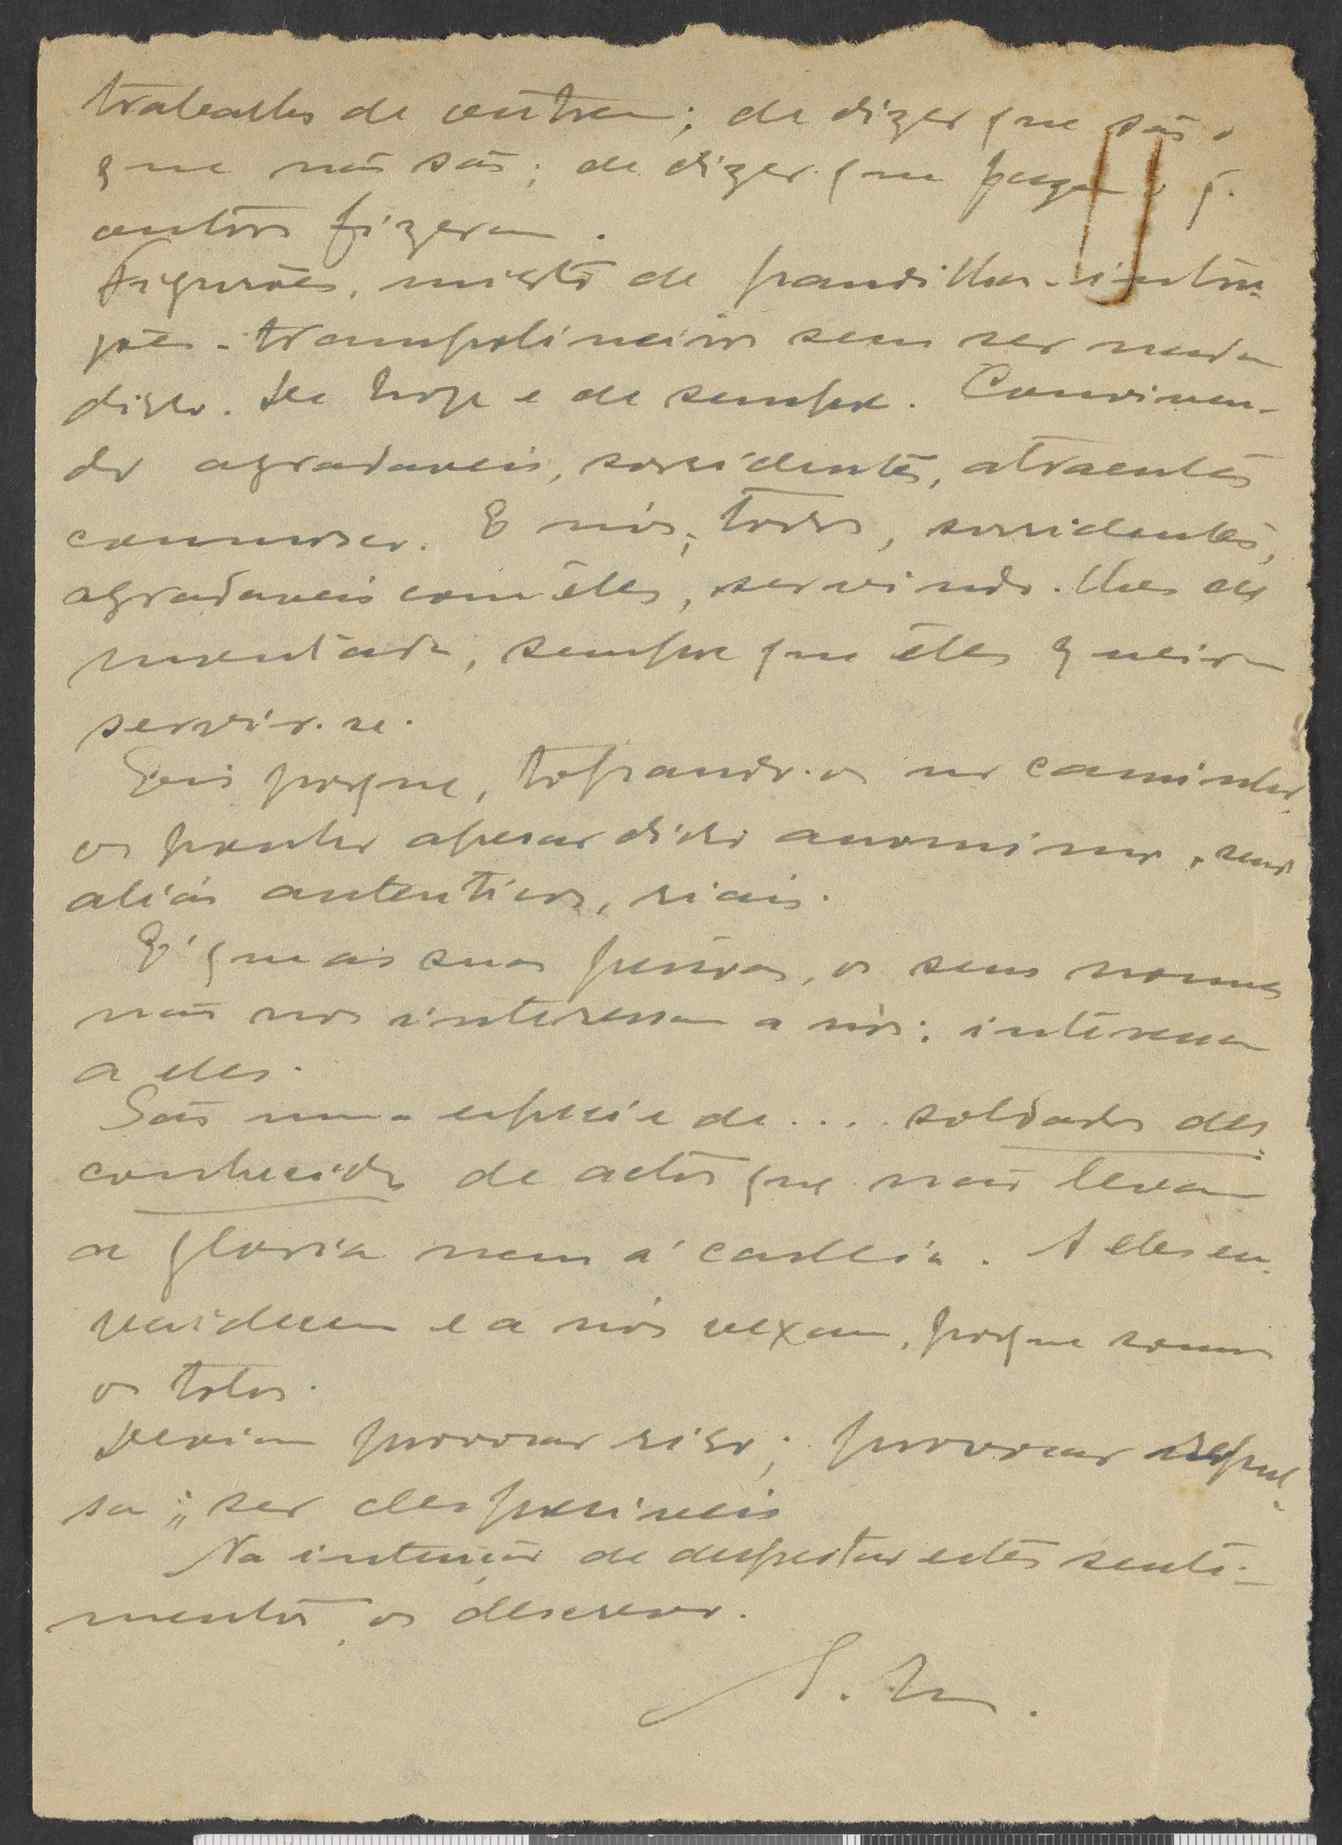 trabalhos de outrem; de dizer que são o
que não são; de dizer que fizeram o q.
outros fizeram.
Figurões, misto de pandilhas-intru-
jões-trampolineiros sem ser nada
disso. De hoje e de sempre. Conviven-
do agradaveis, sorridentes, atraentes
connosco. E nós, todos, sorridentes,
agradaveis com êles, servindo-lhes de
montada, sempre que êles queiram
servir-se.
Eis porque, topando-os no caminho,
os ponho apesar disso anonimos, mas
aliás autenticos, riais.
E' que as suas pessoas, os seus nomes
não nos interessam a nós; interessam
a eles.
São uma especie de .... soldados des-
conhecidos de actos que não levam
á gloria nem á cadeia. A eles en-
vaidecem e a nós vexam, porque somos
os tolos.
Deviam provocar riso; provocar repul-
sa; ser despresiveis
Na intenção de despertar estes senti-
mentos, os descrevo.